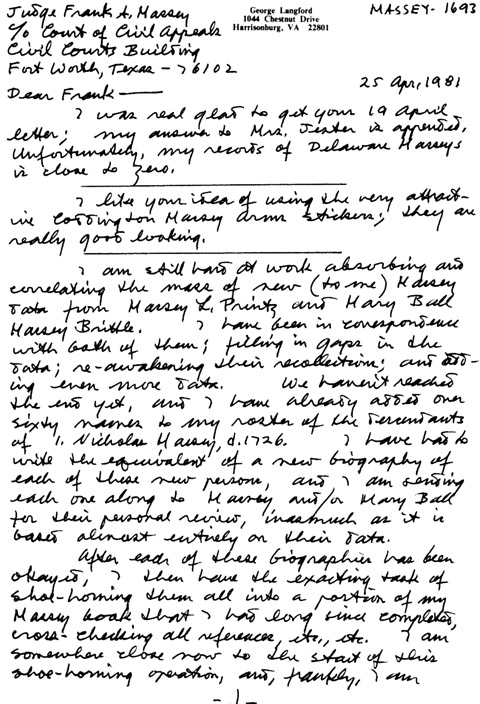 Judge Frank A. Massey
c/o Court of Civil Appeals
Civil Courts Building
Fort Worth, Texas - 76102
George Langford
1044 Chestnut Drive
Harrisonburg, VA 22801
MASSEY - 1693
25 Apr, 1981
Dear Frank —
I was real glad to get your 19 April
letter; my answer to Mrs. Jester is appended.
Unfortunately, my records of Delaware Masseys
is close to zero.
I like your idea of using the very attract-
ive Coddington Massey arms stickers; they are
really good looking.
I am still hard at work absorbing and
correlating the mass of new (to me) Massey
data from Massey L. Printz and Mary Ball
Massey Brittle. I have been in correspondence
with both of them; filling in gaps in the
data; re-awakening their recollection; and add-
ing even more data. We haven't reached
the end yet, and I have already added over
sixty names to my roster of the descendants
of 1. Nicholas Massey, d. 1726. I have had to
write the equivalent of a new biography of
each of these new persons, and I am sending
each one along to Massey and/or Mary Ball
for their personal review, inasmuch as it is
based almost entirely on their data.
After each of these biographies has been
okayed, I then have the exacting task of
shoe-horning them all into a portion of my
Massey book that I had long since completed,
cross-checking all references, etc., etc. I am
somewhere close now to the start of this
shoe-horning operation, and, frankly, I am
-1-